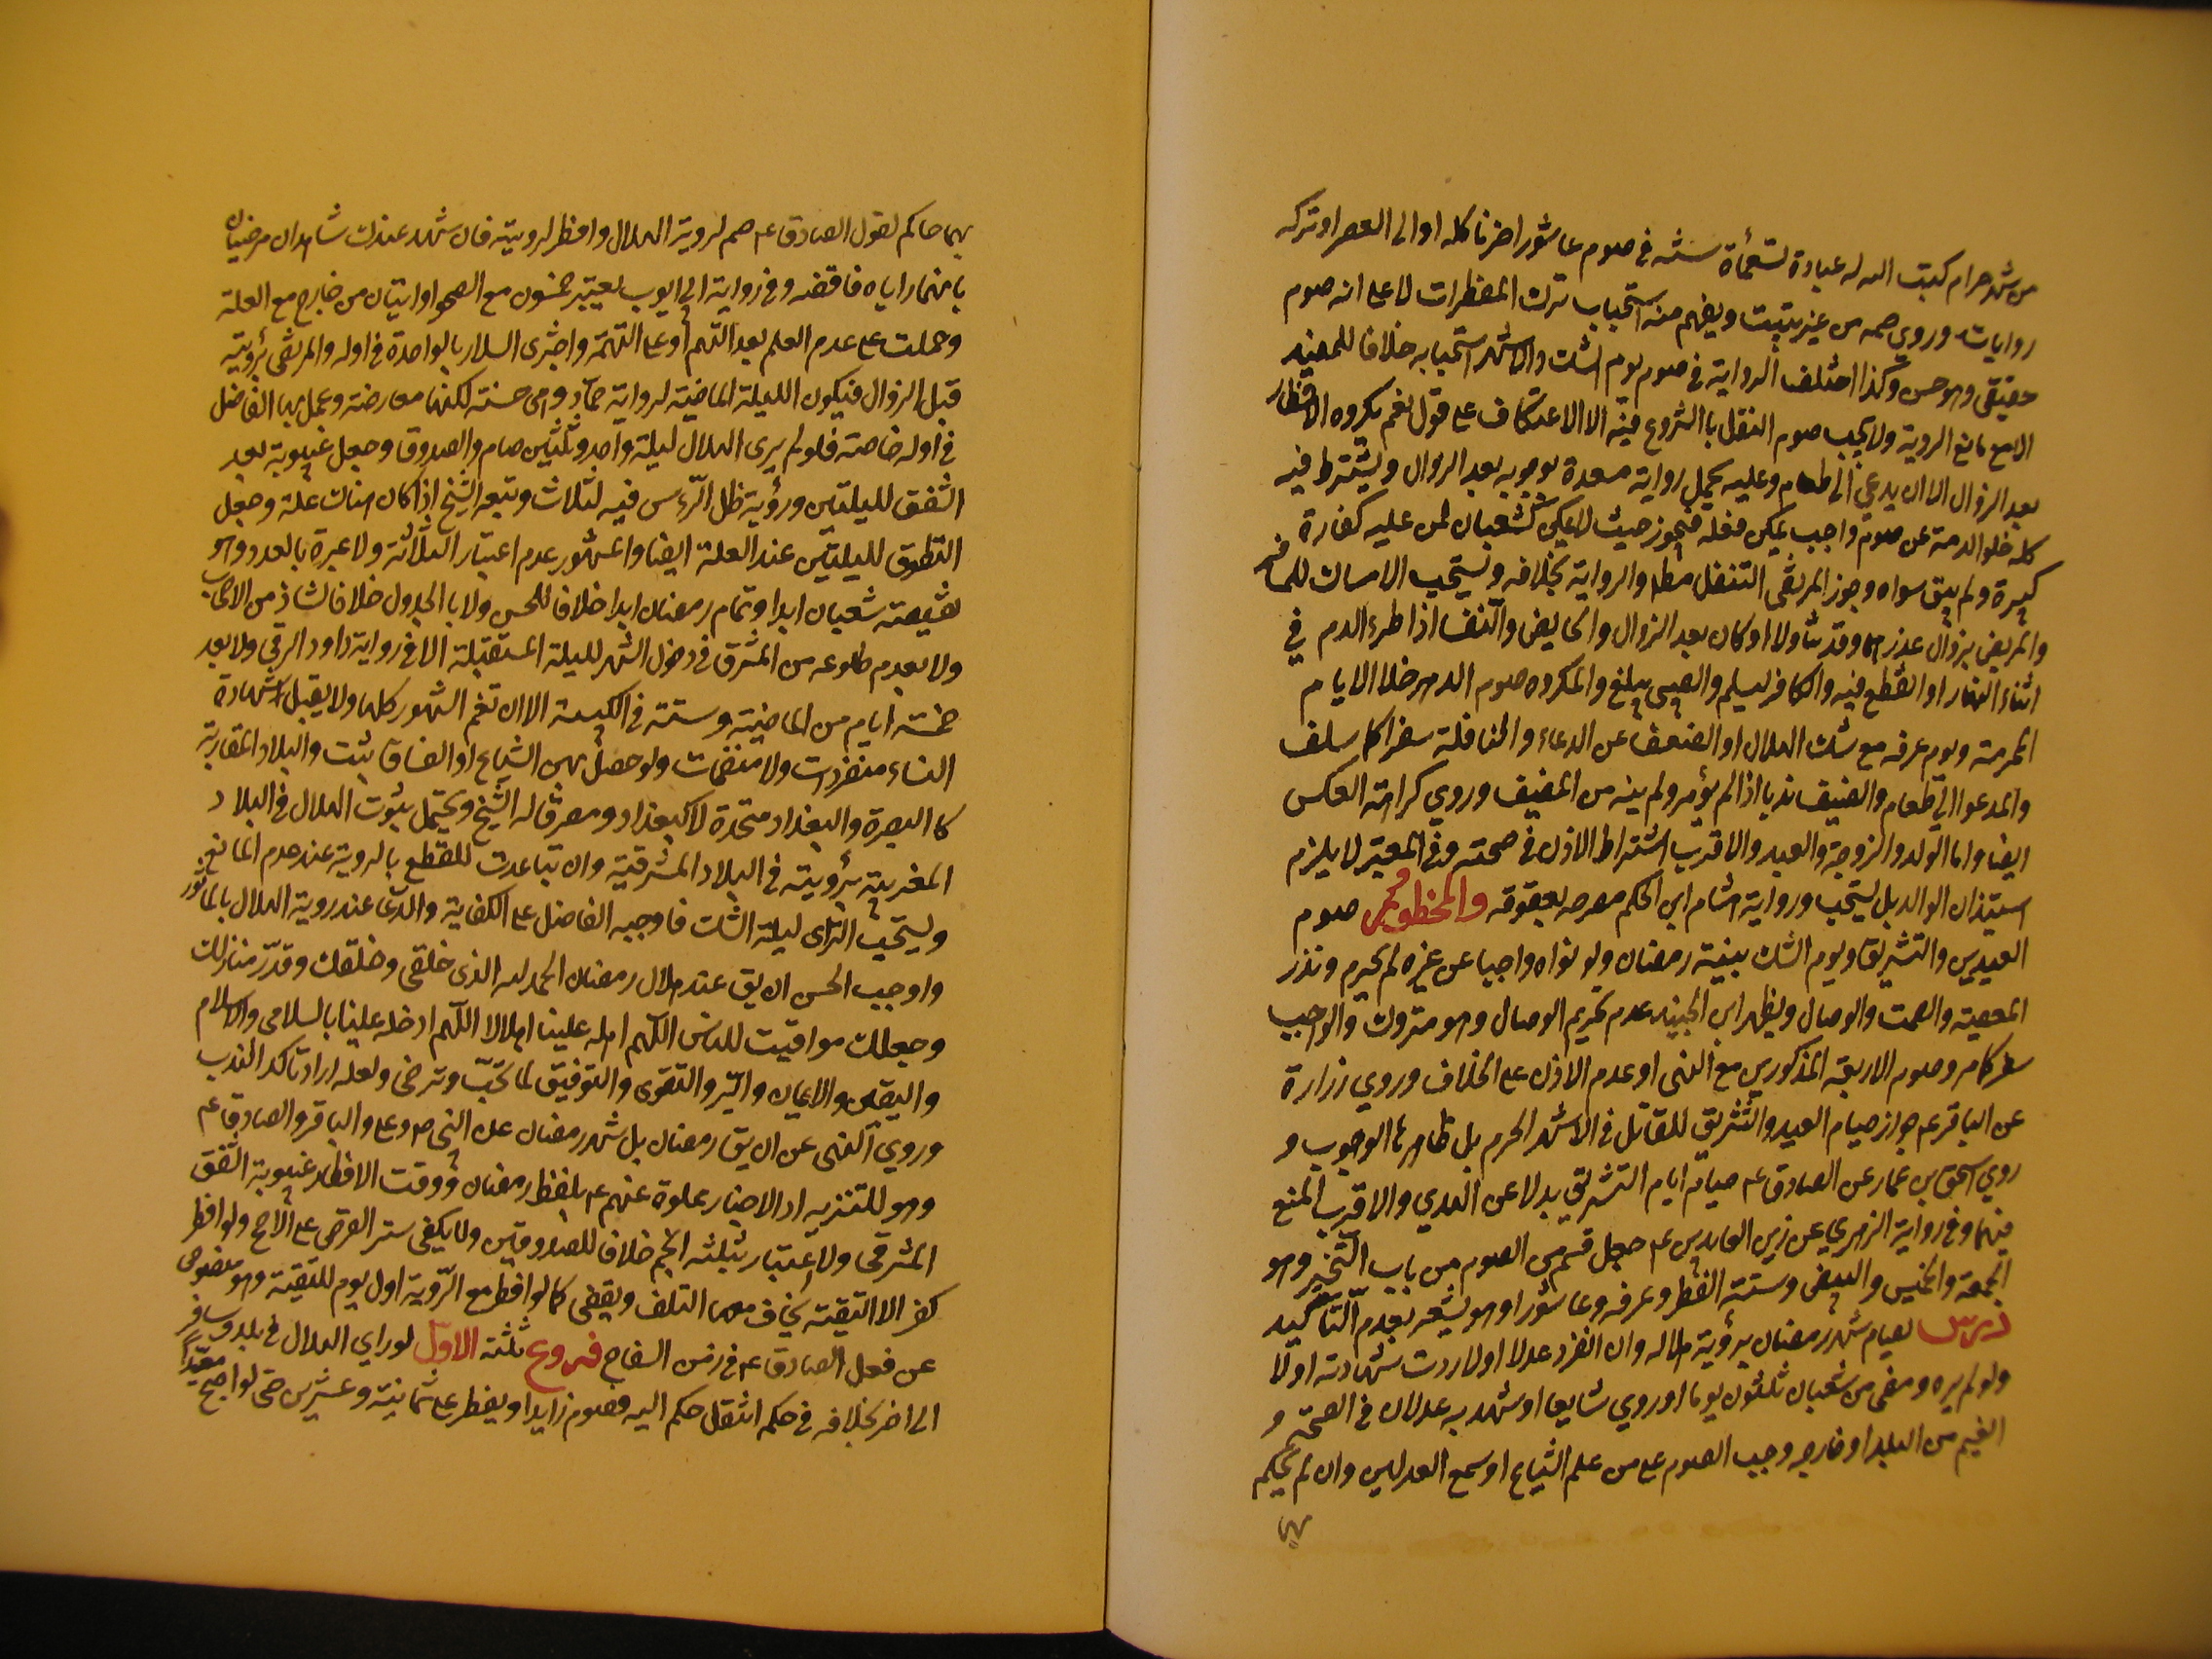 من شهر حرام كتبت الله له عبادة تسعمأة سنة في صوم عاشورا حزنا كله او الى العصر او تركه
روايات وروي صمه من غير تبييت ويفهم منه استحباب ترك المفطرات لا على انه صوم
حقيقي وهو حسن وكذا اختلف الرواية في صوم يوم الشك والاشهر استحبابه خلافا للمفيد
الا مع مانع الروية ولا يجب صوم النفل بالشروع فيه الا الاعتكاف على قول نعم يكره الافطار
بعد الزوال الا ان يدعى الى طعام وعليه يحمل رواية مسعدة بوجوبه بعد الزوال ويشترط فيه
كله خلو الذمة عن صوم واجب يمكن فعله فيجوز حيث لا يمكن كشعبان لمن عليه كفارة
كبيرة ولم يبق سواه وجوز المرتضى التنفل مطلقا والرواية بخلافه ويستحب الامساك للمسافر
والمريض بزوال عذرهما وقد تناولا او كان بعد الزوال والحايض والنفسا اذا طرء الدم في
اثناء النهار او انقطع فيه والكافر يسلم والصبي يبلغ والمكروه صوم الدهر خلا الايام
المحرمة ويوم عرفه مع شك الهلال او الضعف عن الدعاء والنافلة سفرا كما سلف
والمدعوا الى طعام والضيف ندبا اذا لم يؤمر ولم ينه من المضيف وروي كراهة العكس
ايضا واما الولد والزوجة والعبد والاقرب اشتراط الاذن في صحته وفي المعتبر لا يلزم
استيذان الوالد بل يستحب ورواية هشام ابن الحكم مصرحه بعقوقه والمحظور صوم
العيدين والتشريق ويوم الشك بنية رمضان ولو نواه واجبا عن غيره لم يحرم ونذر
المعصية والصمت والوصال ويظهر ابن الجنيد عدم تحريم الوصال وهو متروك والواجب
سفر كامر وصوم الاربعة المذكورين مع النهى او عدم الاذن على الخلاف وروي زرارة
عن الباقر عم جواز صيام العيد والتشريق للقاتل في الاشهر الحرم بل ظاهرها الوجوب و
روي اسحق بن عمار عن الصادق عم صيام ايام التشريق بدلا عن الهدي والاقرب المنع
فيهما وفي رواية الزهري عن زين العابدين عم جعل قسم من الصوم من باب التخير وهو
الجمعة والخميس والبيض وستة الفطر وعرفه وعاشورا وهو يشعر بعدم التأكيد
درس يصام شهر رمضان برؤية هلاله وان انفرد عدلا اولا ردت شهادته اولا
ولو لم يره ومضى من شعبان ثلثون يوما او روي شايعا او شهد به عدلان في الصحو و
الغيم من البلد او خارجه وجب الصوم على من علم الشياع او سمع العدلين وان لم يحكم
بهما
بهما حاكم لقول الصادق عم صم لروية الهلال وافطر لروييته فان شهد عندك شاهدان مرضيان
بانهما راياه فاقضه وفي رواية ابي ايوب يعتبر خمسون مع الصحو او اثنان من خارج مع العلة
وحملت على عدم العلم بعدالتهم او على التهمة واجتزى السلار بالواحدة في اوله والمرتضى برؤيته
قبل الزوال فيكون الليلة الماضية لرواية حماد وهى حسنة لكنها معارضة وعمل بها الفاضل
في اوله خاصة فلو لم يرى الهلال ليلة واحد وثلثين صام والصدوق وجعل غيبوبة بعد
الشفق لليلتين ورؤية ظل الرّءس فيه لثلاث وتبعه الشيخ اذا كان هناك علة وجعل
التطوق لليلتين عند العلة ايضا والمشهور عدم اعتبار الثلاثة ولا عبرة بالعدد وهو
نقيصة شعبان ابدا وتمام رمضان ابدا خلافا للحسن ولا بالجدول خلافا لشاذ من الاصحاب
ولا بعدم طلوعه من المشرق في دخول الشهر لليلة المستقبلة الا في رواية داود الرقي ولا بعد
خمسة ايام من الماضية وستة في الكبيسة الا ان تغم الشهور كلها ولا يقبل شهادة
النساء منفردات ولا منضمات ولو حصل بهن الشياع او الفساق ثبت والبلاد المتقاربة
كالبصرة والبغداد متحدة لا كبغداد ومصر قاله الشيخ ويحتمل ثبوت الهلال في البلاد
المغربية برؤيته في البلاد المشرقية وان تباعدت للقطع بالروية عند عدم المانع
ويستحب الترائى ليلة الشك فاوجبه الفاضل على الكفاية والدعا عند روية الهلال بالماثور
واوجب الحسن ان يق عند هلال رمضان الحمد لله الذى خلقنى وخلقك وقدّر منازلك
وجعلك مواقيت للناس اللهم اهله علينا اهلالا اللهم ادخله علينا بالسلامى والاسلام
واليقين والايمان والبّر والتقوى والتوفيق لما تحبّ وترضى ولعله اراد تاكد الندب
وروي النهى عن ان يق رمضان بل شهر رمضان عن النبى ص وعلى والباقر والصادق عم
وهو للتنزيه اذ الاخبار مملوة عنهم عم بلفظ رمضان ووقت الافطار غيبوبة الشفق
المشرقى ولا اعتبار بثلثة انجم خلافا للصدوقين ولا يكفى ستر القرص على الاصح ولو افطر
كفر الا التقية يخاف معها التلف ويقضى كما لو افطر مع الرّوية اول يوم للتقية وهو منصوص
عن فعل الصادق عم في زمن السفاح فروع ثلثة الاول لو راي الهلال في بلد وسافر
الى اخر بخلافه في حكمه انتقل حكمه اليه فيصوم زايدا ويفطر على ثمانية وعشرين حتى لو اصبح معيّدا